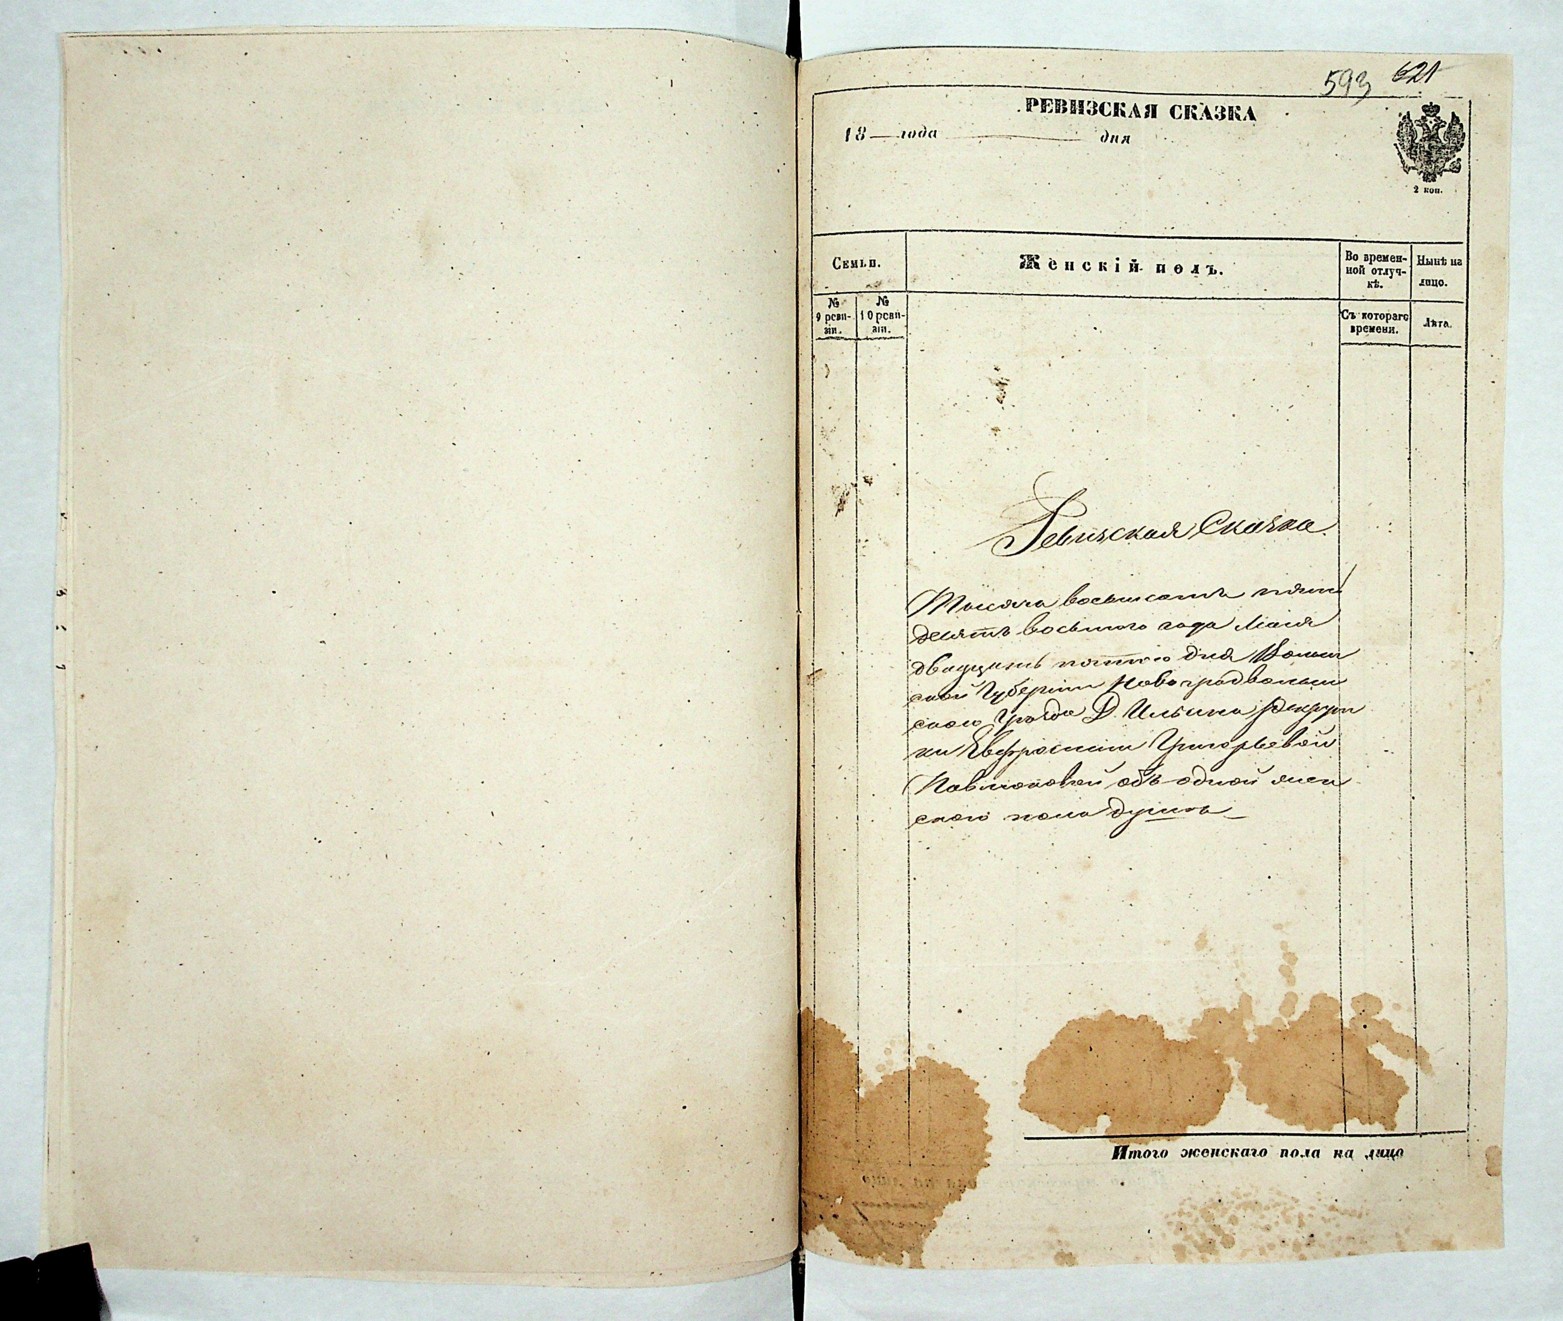 593 621
РЕВИЗСКАЯ СКАЗКА
18 — года ——— дня
2 коп.
Семьи.
Женскій полъ.
Во времен-
ной отлуч-
кѣ.
Нынѣ на
лицо.
№
9 реви-
зіи.
№
10 реви-
зіи.
Съ котораго
времени.
Лѣта.
Ревизская Сказка.
Тысяча восьмсотъ пять
десятъ восьмого года Маія
двадцать пятого дня Волын
ской Губерніи Новоградволын
скаго уѣзда Д. Ильина Рекрут
ки Евфросиніи Григорьевой
Павлюковой объ одной жен
скаго пола душѣ
Итого женскаго пола на лицо